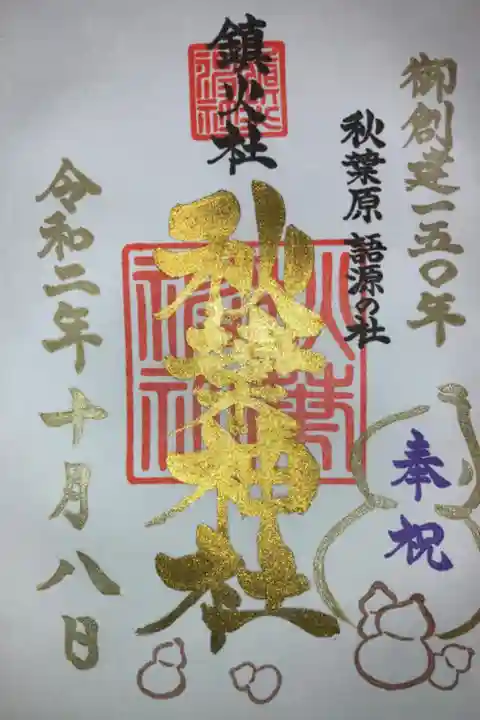 御創建一五〇年
奉祝
秋葉原 語源の社
鎮火社
秋葉神社
令和二年十月八日